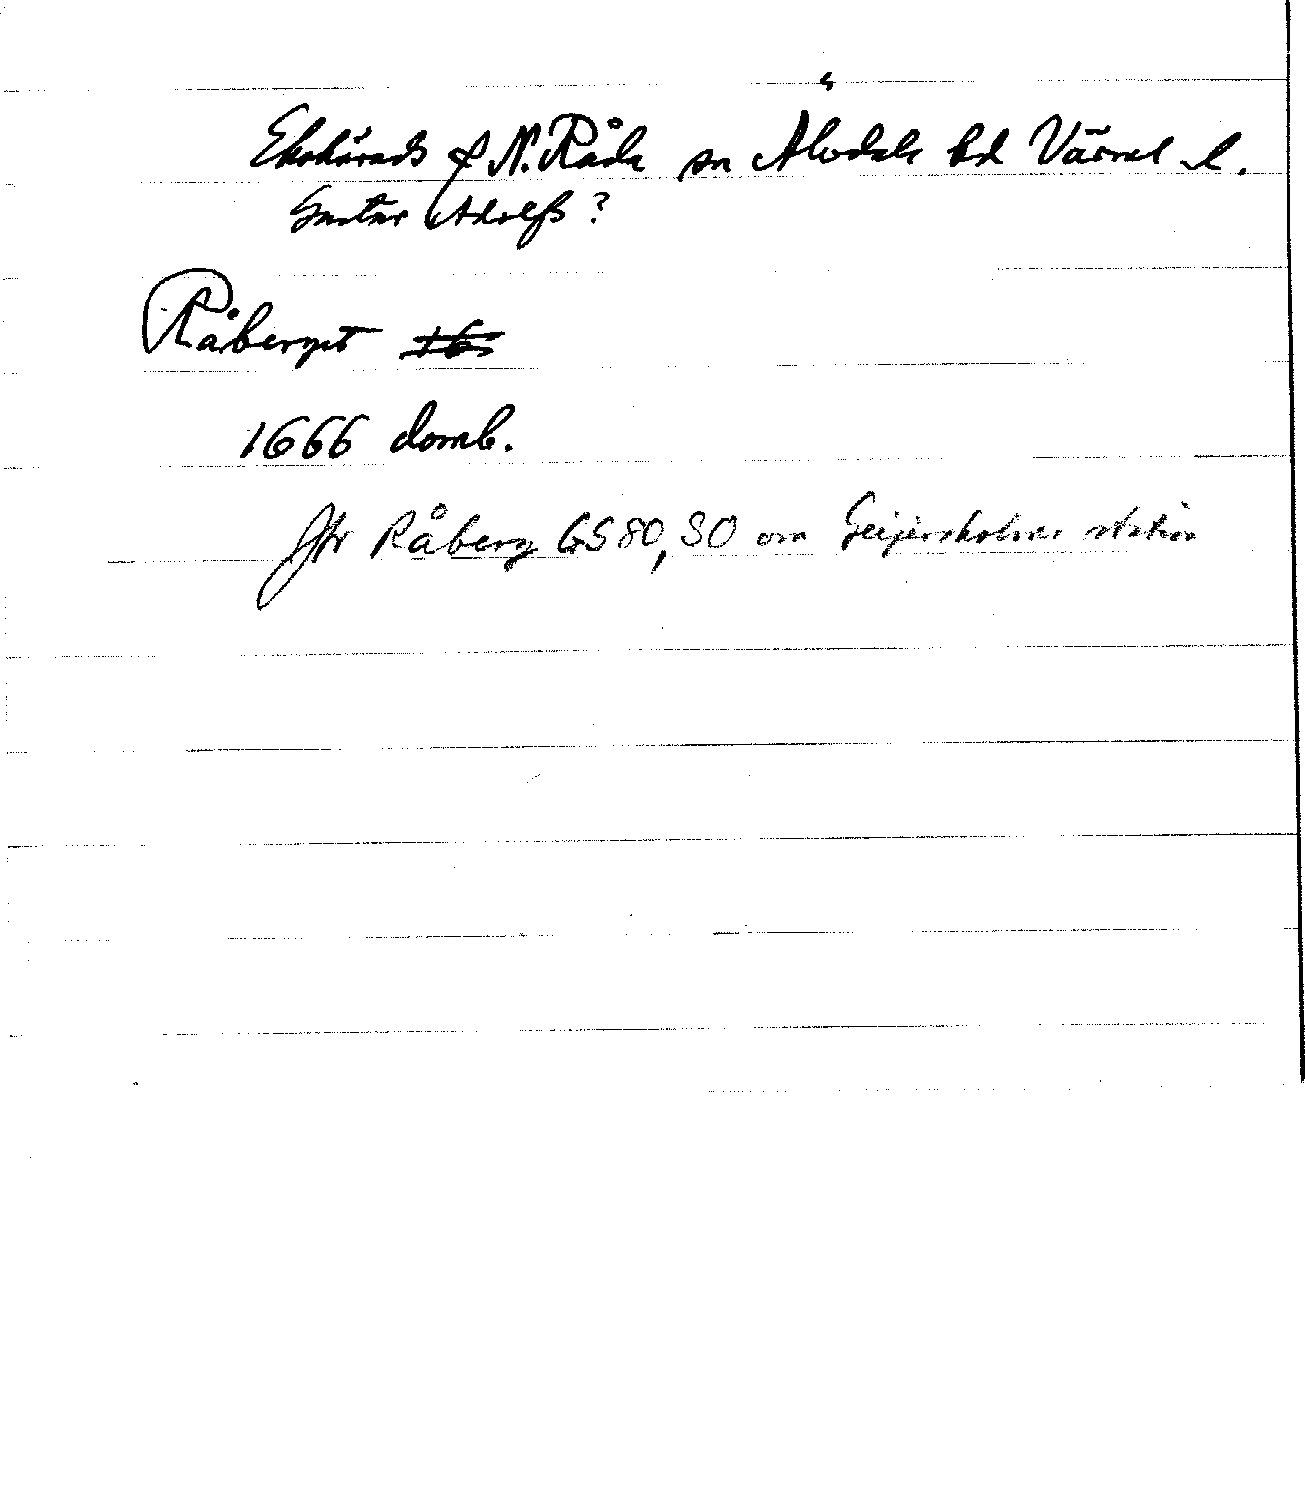 Ekshärads o N. Råda sn Älvdals hd Värml l.
Gustav Adolfs?
Råberget
1666 domb.
Jfr Råberg GS80, SO om Geijersholms station